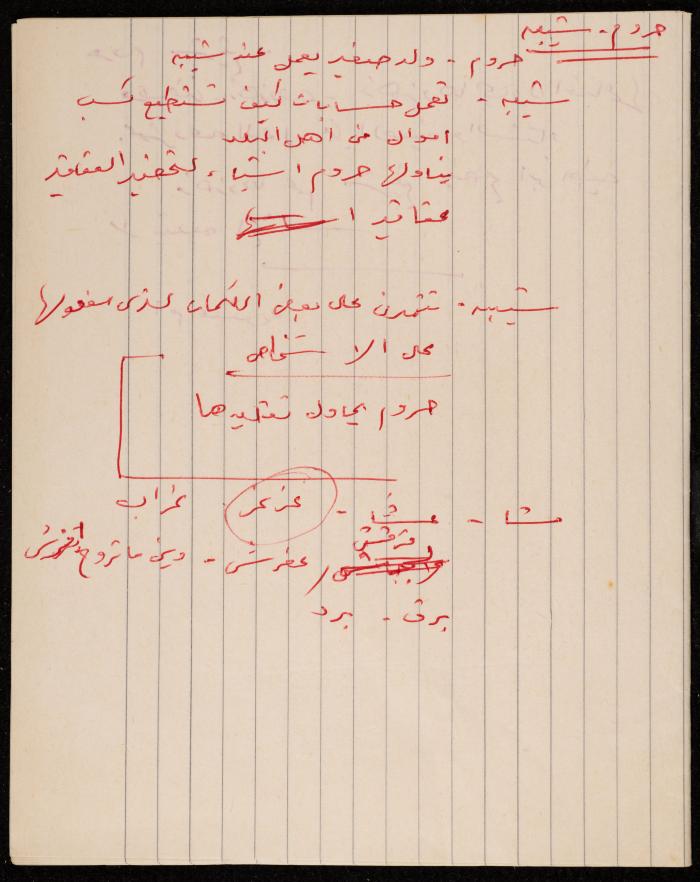 حروم - شيبه
حروم - ولد صغير يعمل عند شيبه
شيبه - تعمل حسابات كيف تستطيع كسب
اموال من اهل البلد
يناولها حروم اشياء لتحضير العقاقير
عقاقير
شيبه - تتمرن على بعض الكلمات لتقولها
على الاشخاص
حروم يحاول تقليدها
شا - عشا - عزعز - خراب
قرقش
عفرش - وين ما تروح
برق - برد